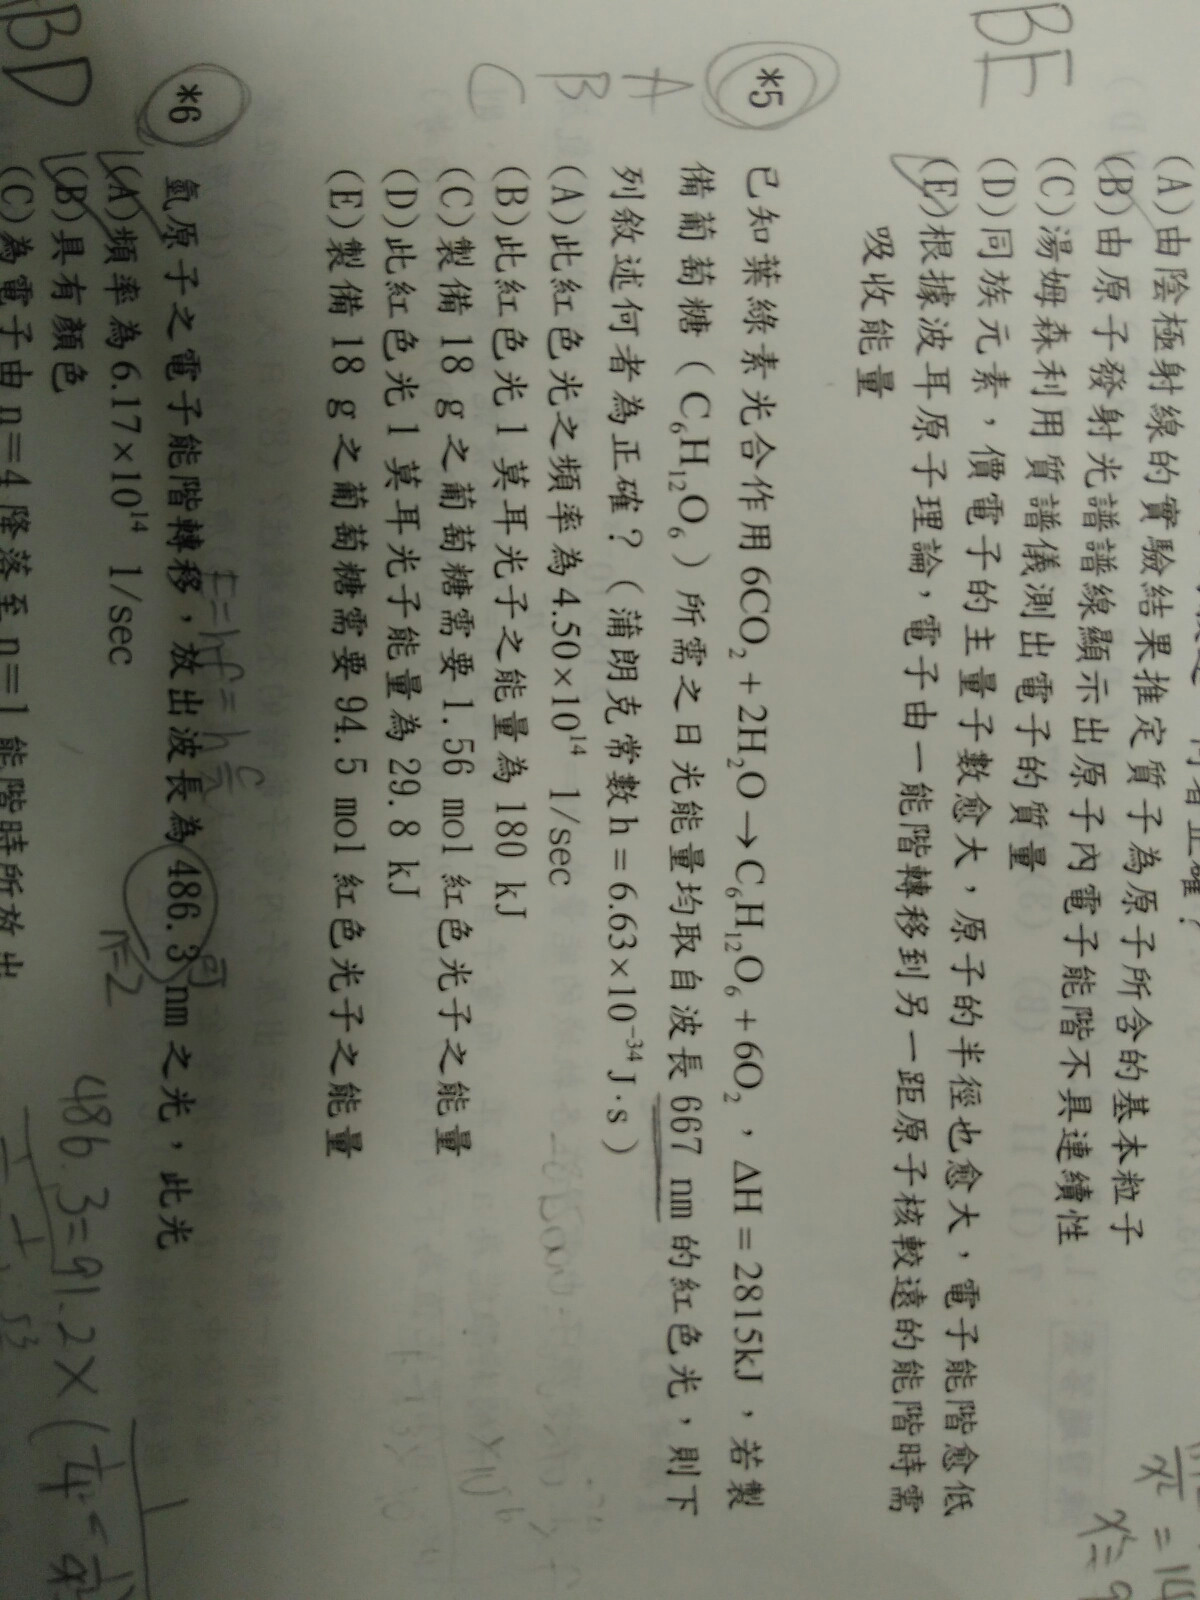 BE
(A)由陰極射線的實驗結果推定質子為原子所含的基本粒子
(B)由原子發射光譜譜線顯示出原子內電子能階不具連續性
(C)湯姆森利用質譜儀測出電子的質量
(D)同族元素，價電子的主量子數愈大，原子的半徑也愈大，電子能階愈低
(E)根據波耳原子理論，電子由一能階轉移到另一距原子核較遠的能階時需
吸收能量
A
B
C
*5
已知葉綠素光合作用6CO₂+2H₂O→C₆H₁₂O₆+6O₂，ΔH=2815kJ，若製
備葡萄糖（C₆H₁₂O₆）所需之日光能量均取自波長667 nm的紅色光，則下
列敘述何者為正確？（蒲朗克常數h=6.63×10⁻³⁴J·s）
(A)此紅色光之頻率為4.50×10¹⁴ 1/sec
(B)此紅色光1莫耳光子之能量為180 kJ
(C)製備18 g之葡萄糖需要1.56 mol紅色光子之能量
(D)此紅色光1莫耳光子能量為29.8 kJ
(E)製備18 g之葡萄糖需要94.5 mol紅色光子之能量
BD
*6
E=hf=h c/λ
氫原子之電子能階轉移，放出波長為486.3nm之光，此光
可
n=2
(A)頻率為6.17×10¹⁴ 1/sec
(B)具有顏色
(C)為電子由n=4降落至n=1能階時所放出
486.3=91.2×